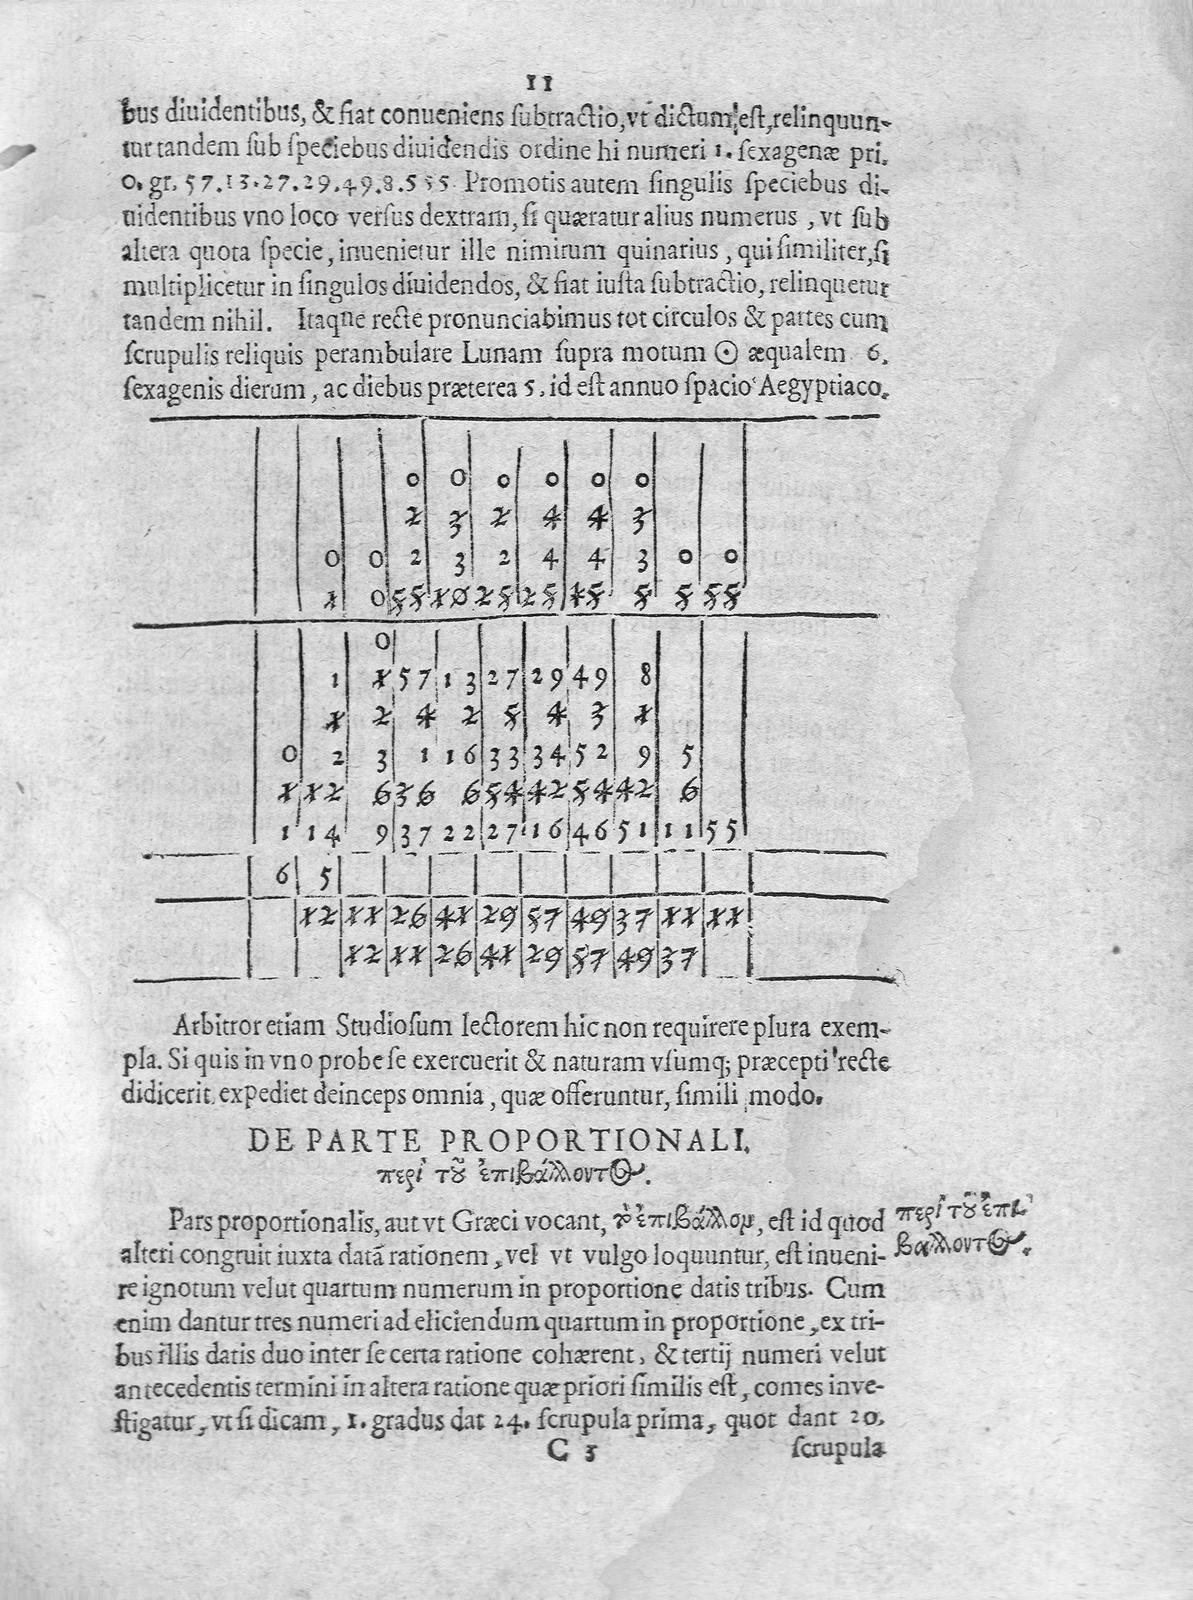 11
bus diuidentibus, & fiat conueniens ſubtractio, vt dictum eſt, relinquun-
tur tandem ſub ſpeciebus diuidendis ordine hi numeri 1. ſexagenæ pri.
0. gr. 57.13.27.29.49.8.5 55. Promotis autem ſingulis ſpeciebus di-
uidentibus vno loco verſus dextram, ſi quæratur alius numerus, vt ſub
altera quota ſpecie, inuenietur ille nimirum quinarius, qui ſimiliter, ſi
multiplicetur in ſingulos diuidendos, & fiat iuſta ſubtractio, relinquetur
tandem nihil. Itaque recte pronunciabimus tot circulos & partes cum
ſcrupulis reliquis perambulare Lunam ſupra motum ☉ æqualem 6.
ſexagenis dierum, ac diebus præterea 5. id eſt annuo ſpacio Aegyptiaco.
0 0 0 0 0 0
2 3 2 4 4 3
0 0 2 3 2 4 4 3 0 0
1 0 55 10 25 25 45 5 5 55
0
1 1 57 13 27 29 49 8
1 2 4 2 5 4 3 1
0 2 3 1 16 33 34 52 9 5
1 12 6 36 6 54 42 54 42 6
1 14 9 37 22 27 16 46 51 11 55
6 5
12 11 26 41 29 57 49 37 11 11
12 11 26 41 29 57 49 37
Arbitror etiam Studioſum lectorem hic non requirere plura exem-
pla. Si quis in vno probe ſe exercuerit & naturam vſumq; præcepti recte
didicerit, expediet deinceps omnia, quæ offeruntur, ſimili modo.
DE PARTE PROPORTIONALI.
περὶ τοῦ ἐπιβάλλοντος.
Pars proportionalis, aut vt Græci vocant, τὸ ἐπιβάλλον, eſt id quod
περὶ τοῦ ἐπι
alteri congruit iuxta datã rationem, vel vt vulgo loquuntur, eſt inueni-
βάλλοντος.
re ignotum velut quartum numerum in proportione datis tribus. Cum
enim dantur tres numeri ad eliciendum quartum in proportione, ex tri-
bus illis datis duo inter ſe certa ratione cohærent, & tertij numeri velut
antecedentis termini in altera ratione quæ priori ſimilis eſt, comes inue-
ſtigatur, vt ſi dicam, 1. gradus dat 24. ſcrupula prima, quot dant 20.
C 3 ſcrupula